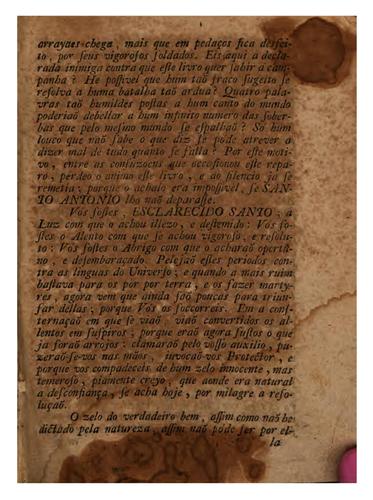 arrayaes chega, mais que em pedaços fica desfei-
to, por seus vigorosos soldados. Eis aqui a decla-
rada inimiga contra que este livro quer sahir a cam-
panha? He possivel que hum taõ fraco sugeito se
resolva a huma batalha taõ ardua? Quatro pala-
vras taõ humildes postas a hum canto do mundo
poderiaõ debellar a hum infinito numero das sober-
bas que pelo mesmo mundo se espalhaõ? Só hum
louco que naõ sabe o que diz se póde atrever a
dizer mal de tudo quanto se falla? Por este moti-
vo, entre as confusoens que occasionou este repa-
ro, perdeo o animo este livro, e ao silencio já se
remetia; porque o achalo era impossivel, se SAN-
TO ANTONIO lho naõ deparasse.
Vós fostes, ESCLARECIDO SANTO, a
Luz com que o achou illezo, e destemido: Vós fo-
stes o Alento com que se achou vigoroso, e resolu-
to: Vós fostes o Abrigo com que o acharaõ opertu-
no, e desembaraçado. Pelejaõ estes periodos con-
tra as linguas do Universo; e quando a mais ruim
bastava para os por por terra, e os fazer marty-
res, agora vem que ainda saõ poucas para triun-
far dellas; porque Vós os soccorreis. Em a con-
ternaçaõ em que se viaõ, viaõ convertidos os a-
lentos em suspiros, porque eraõ agora sustos o que
ja foraõ arrojos: clamaraõ pelo vosso auxilio, pu-
zeraõ-se-vos nas mãos, invocaõ-vos Protector, e
porque vos compadeceis de hum zelo innocente, mas
temeroso, piamente creyo, que aonde era natural
a desconfiança, se acha hoje, por milagre a reso-
luçaõ.
O zelo do verdadeiro bem, assim como naõ he
dictado pela natureza, assim naõ póde ser por el-
la